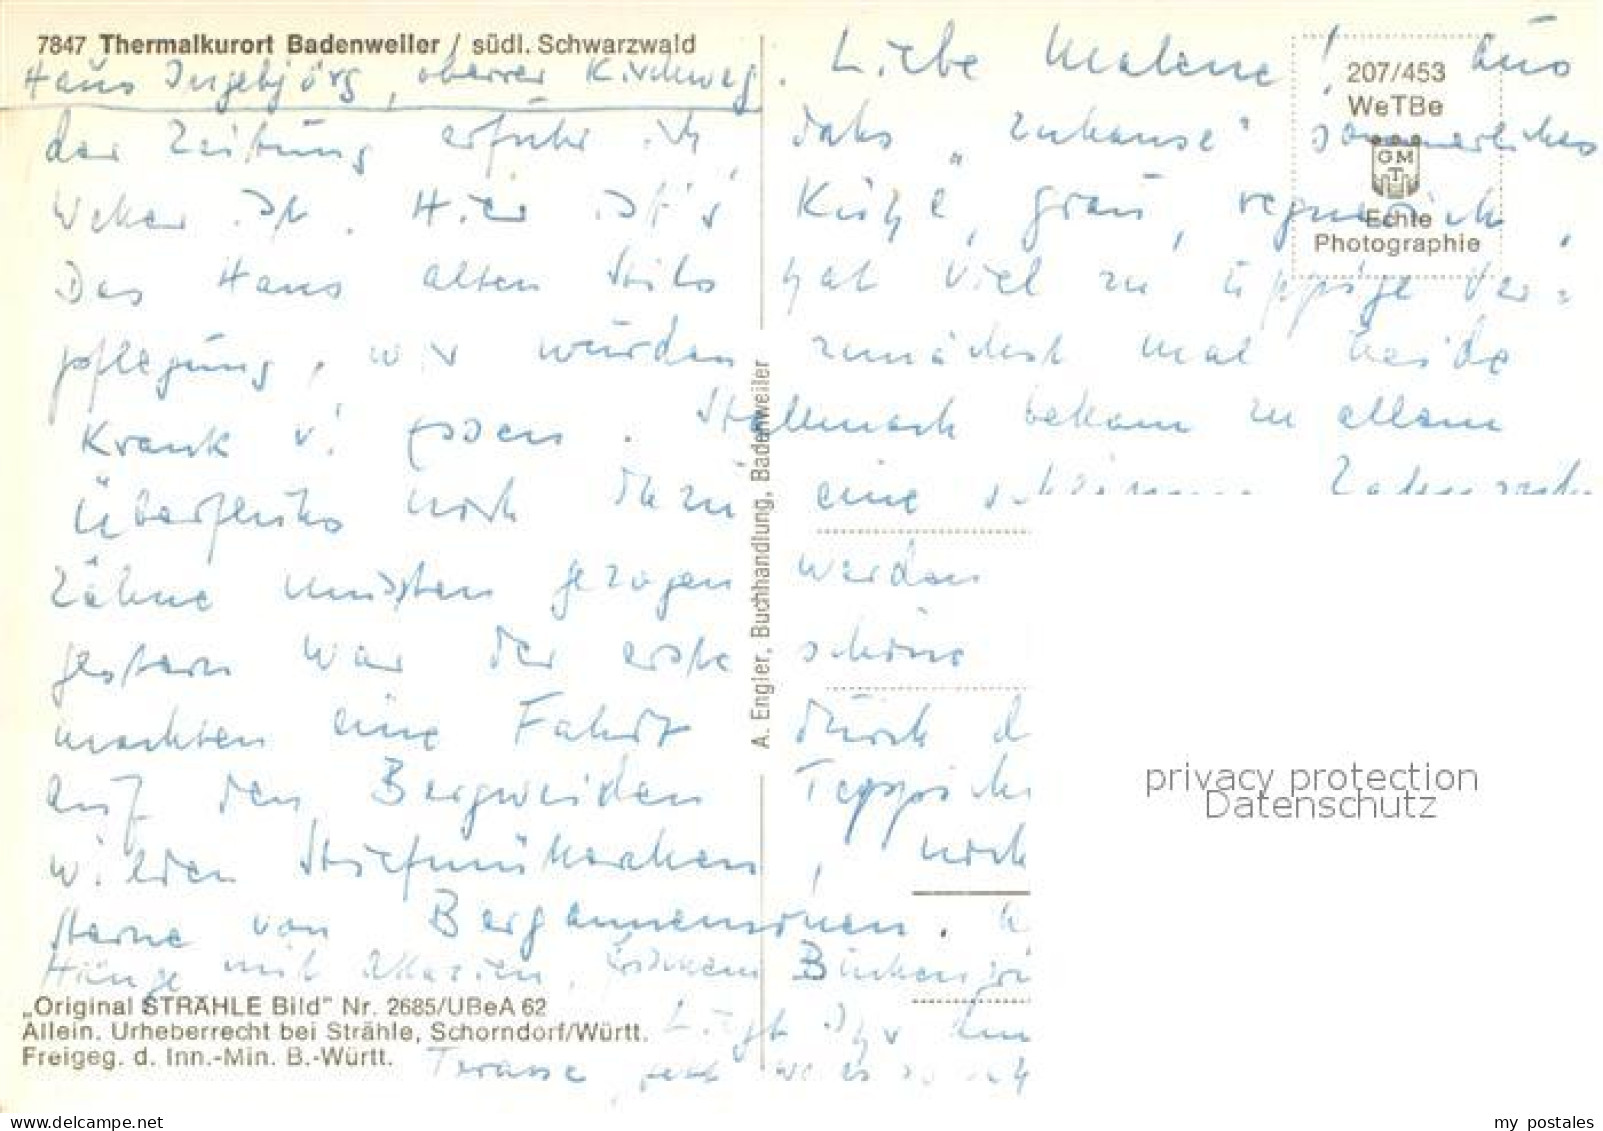 7847 Thermalkurort Badenweiler / südl. Schwarzwald
Haus Ingebjörg, oberer Kirchweg. Liebe Malene! Aus
der Zeitung erfuhr ich, dass „zuhause" sommerliches
Wetter ist. Hier ist's kühl, grau, regnerisch,
Das Haus alten Stils hat viel zu üppige Ver=
pflegung, wir wurden zunächst mal beide
krank v. essen. Stellmach bekam zu allem
Überfluss noch dazu eine
Zähne mussten gezogen werden
gestern war der erste schöne
machten eine Fahrt durch d
auf den Bergweiden Teppich
wilden Stiefmütterchen, noch
Sterne von Bergannemonen.
Hänge mit Akazien, Buchen
Liegt Ihr
Terasse, jetzt wo es so
207/453
WeTBe
GMT
Echte
Photographie
A. Engler, Buchhandlung, Badenweiler
„Original STRÄHLE Bild" Nr. 2685/UBeA 62
Allein. Urheberrecht bei Strähle, Schorndorf/Württ.
Freigeg. d. Inn.-Min. B.-Württ.
privacy protection
Datenschutz
my postales